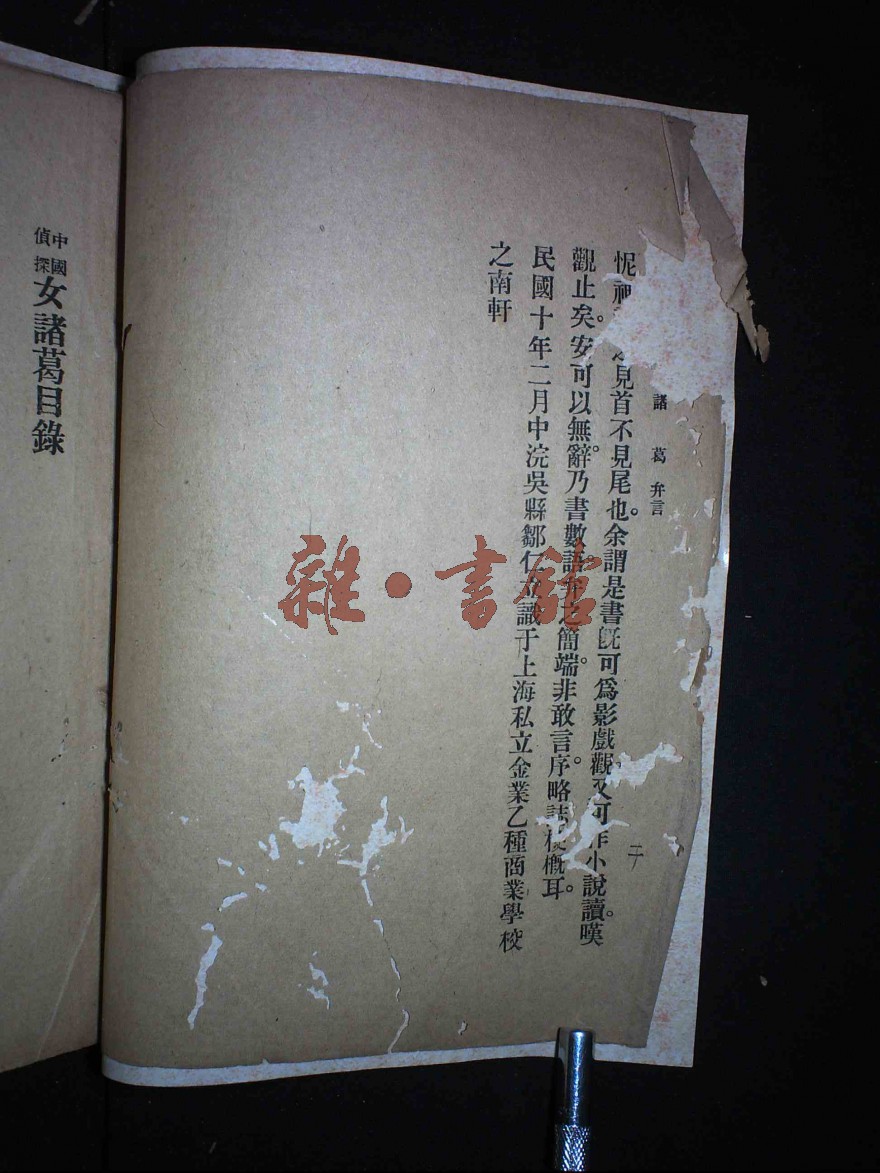 諸葛弁言
二
怩視見首不見尾也。余謂是書旣可爲影戲觀。又可作小說讀。嘆
觀止矣。安可以無辭。乃書數語弁之簡端。非敢言序。略誌梗槪耳。
民國十年二月中浣吳縣鄒仁立識于上海私立金業乙種商業學校
之南軒
中國偵探女諸葛目錄
雜·書館